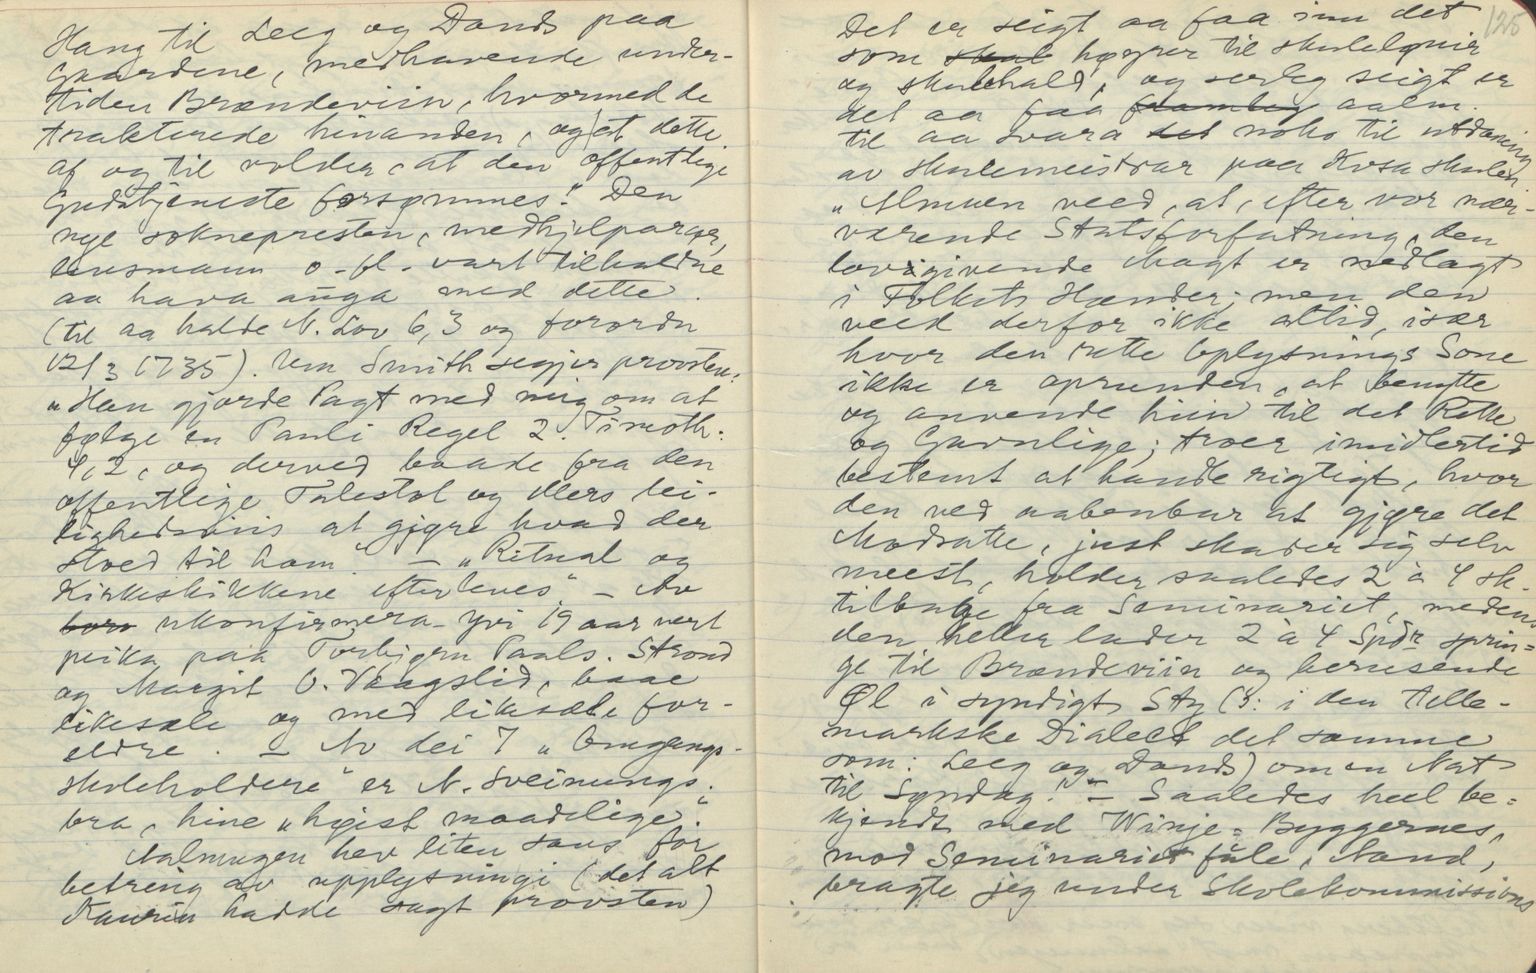 Hang til Leeg og Dands paa
Gaardene, medhavende under-
tiden Brændeviin, hvormed de
trakterede hinanden, og at dette
af og til volder, at den offentlige
Gudstjeneste forsømmes." Den
nye soknepresten, medhjelparar,
lensmann o-fl. vart tilhaldne
aa hava auga med dette.
(til aa halde N. Lov 6,3 og forordn
12/3 1735). Um Smith segjer proosten:
"Han gjorde Pagt med mig om at
følge en Pauli Regel 2. Timoth:
4,2, og derved baade fra den
offentlige Talestol og ellers lei-
lighedsviis at gjøre hvad der
stoed til ham" - "Ritual og
Kirkeskikkene efterleves" - Av
born ukonfirmera yvi 19 aar vert
peika paa Torbjørn Paals. Strond
og Margit O. Vaagslid, baae
likesæle og med likesæle for-
eldre. - Av dei 7 "Omgangs-
skoleholdere" er N. Sveinungs.
bra, hine "høist maadelige."
Aalmugen hev liten sans for
betring av upplysningi (det alt
Kaurin hadde sagt proosten)
125
Det er seigt aa faa inn det
som skal høyrer til skulelønir
og skulehald, og serleg seigt er
det aa faa aalm.
til aa svara det noko til utdaning
av skulemeistrar paa Kvsa skulen.
"Almuen veed, at, efter vor nær-
værende Statsforfatning, den
lovgivende Magt er nedlagt
i Folkets Hænder; men den
veed derfor ikke altid, især
hvor den rette Oplysnings Sone
ikke er oprunden, at benytte
og anvende hiin til det Rette
og Gavnlige; troer imidlertid
bestemt at handle rigtigt, hvor
den ved aabenbar at gjøre det
Modsatte, just skader sig selv
meest, holder saaledes 2 à 4 sk.
tilbake fra Seminariet, medens
den heller lader 2 à 4 Spdr sprin=
ge til Brændeviin og berusende
Øl i syndigt Støy (ɔ: i den Telle-
markske Dialect det samme
som: Leeg og Dands) om en Nat
til Søndag." - Saaledes heel be=
kjendt med Winje=Byggernes,
mod Seminariet fule, Aand,
bragte jeg under Skolekommissions